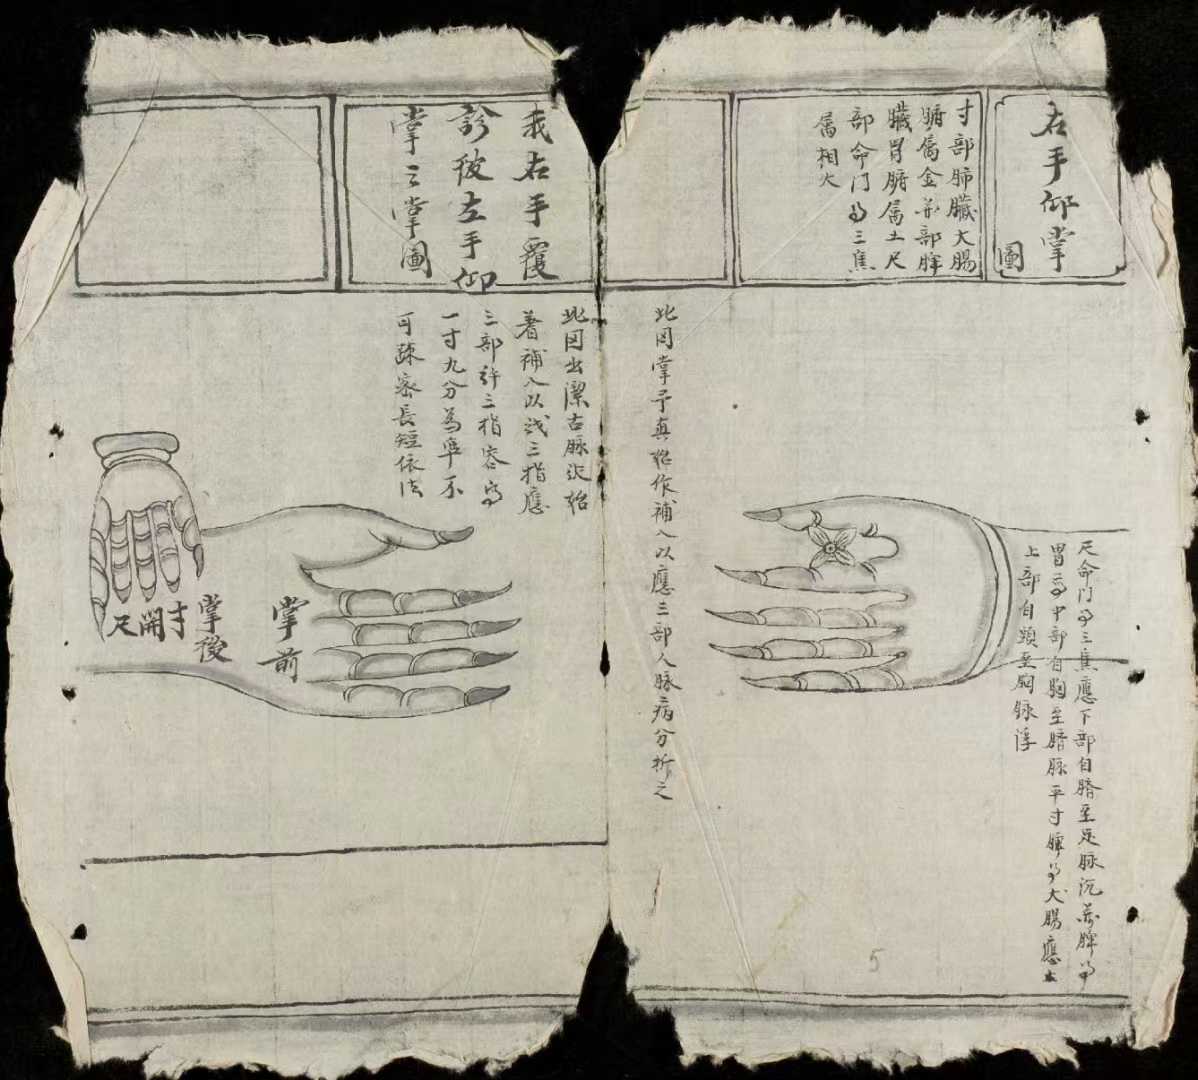 右手仰掌
圖
寸部肺臟大腸
腑属金關部脾
臟胃腑属土尺
部命門與三焦
属相火
尺命門與三焦應下部自臍至足脉沉關脾與
胃應中部自胸至臍脉平寸肺與大腸應
上部自頭至胸脉浮
此图掌
補入以應三部人脉病分析之
我右手覆
診彼左手仰
掌之掌圖
此图出潔古脉訣
著補入以我三指應
三部許三指
一寸九分為準不
可疎密長短依法
掌前
掌後
寸
關
尺
5